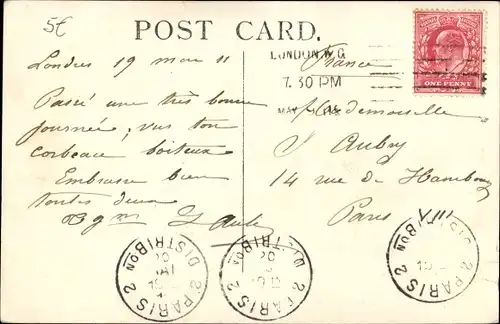 5€
POST CARD.
LONDON. W.C
7.30 PM
MAY
ONE PENNY
Londres 19 mai 11
Passé une très bonne
journée; vus ton
corbeau boiteux
Embrasse bien
toutes deux
France
Mademoiselle
J Aubry
14 rue de Hambourg
Paris VIII
PARIS 2
DISTRIBON
20
PARIS 2
DISTRIBON
20
PARIS 2
DISTRIBON